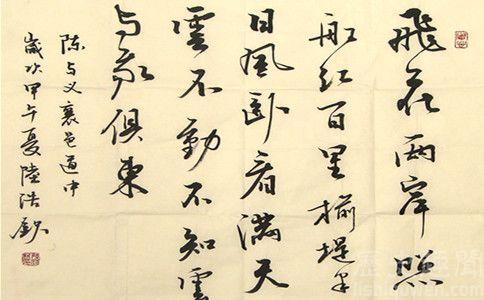 飛花兩岸照
船紅百里榆堤半
日風卧看滿天
雲不動不知雲
与我俱東
陳与义襄邑道中
歲次甲午夏陸浩
lishiquwen.com